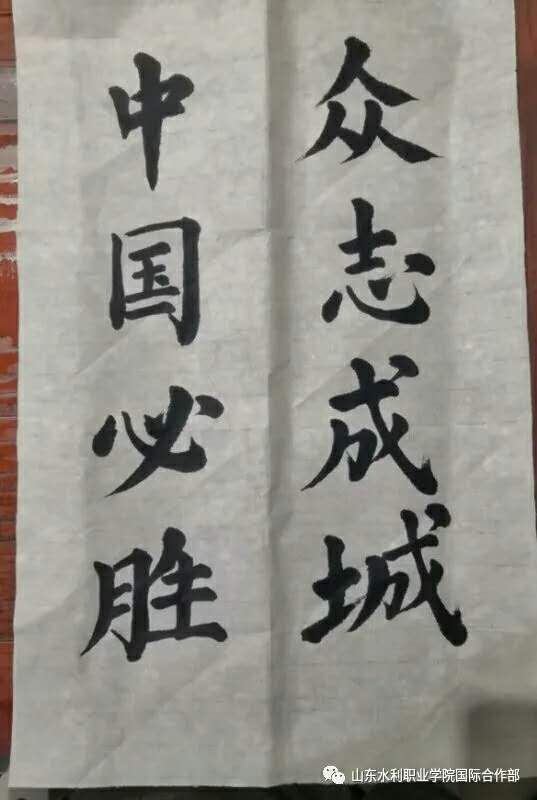 众志成城
中国必胜
山东水利职业学院国际合作部